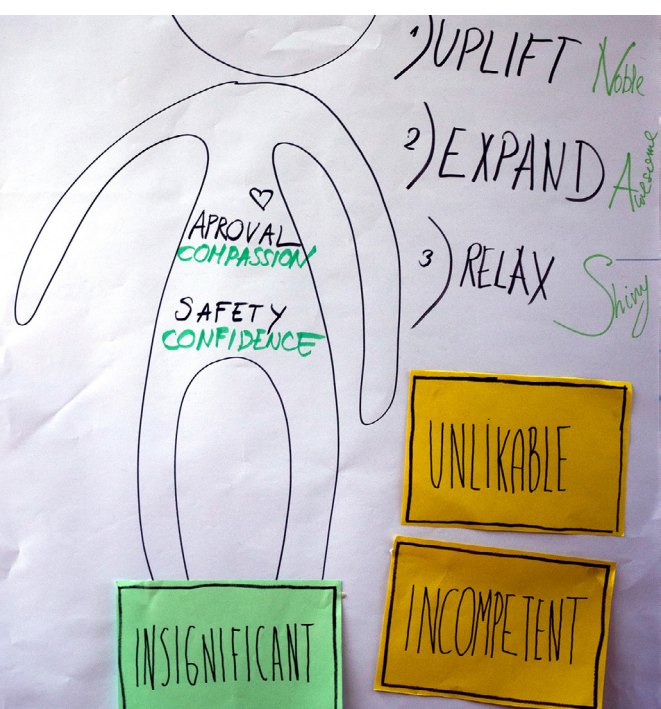 1) UPLIFT Noble
2) EXPAND Awesome
3) RELAX Shiny
APROVAL
COMPASSION
SAFETY
CONFIDENCE
UNLIKABLE
INCOMPETENT
INSIGNIFICANT